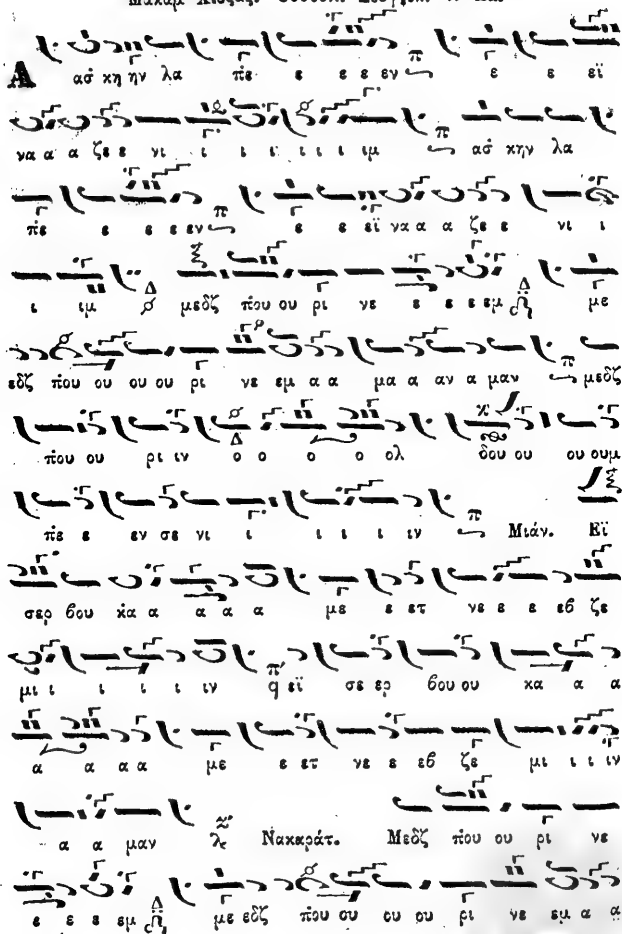 Α ἀσ̇ κη ην λα π̇ε ε ε ε εν ε ε εϊ
να α α ζε ε νι ι ι ι ι ι ι ιμ ἀσ̇ κην λα
π̇ε ε ε ε εν ε ε εϊ να α α ζε ε νι ι
ι ιμ μεδζ π̇ου ου ρι νε ε ε ε εμ με
εδζ π̇ου ου ου ου ρι νε εμ α α μα α αν α μαν μεδζ
π̇ου ου ρι ιν ο ο ο ο ολ δου ου ου ουμ
π̇ε ε εν σε νι ι ι ι ι ιν Μιάν. Εϊ
σερ βου κ̇α α α α α με ε ετ νε ε ε εβ ζε
μι ι ι ι ι ιν εϊ σε ερ βου ου κα α α
α α α α με ε ετ νε ε εβ ζε μι ι ι ιν
α α μαν Νακαράτ. Μεδζ π̇ου ου ρι νε
ε ε ε εμ με εδζ π̇ου ου ου ου ρι νε εμ α α